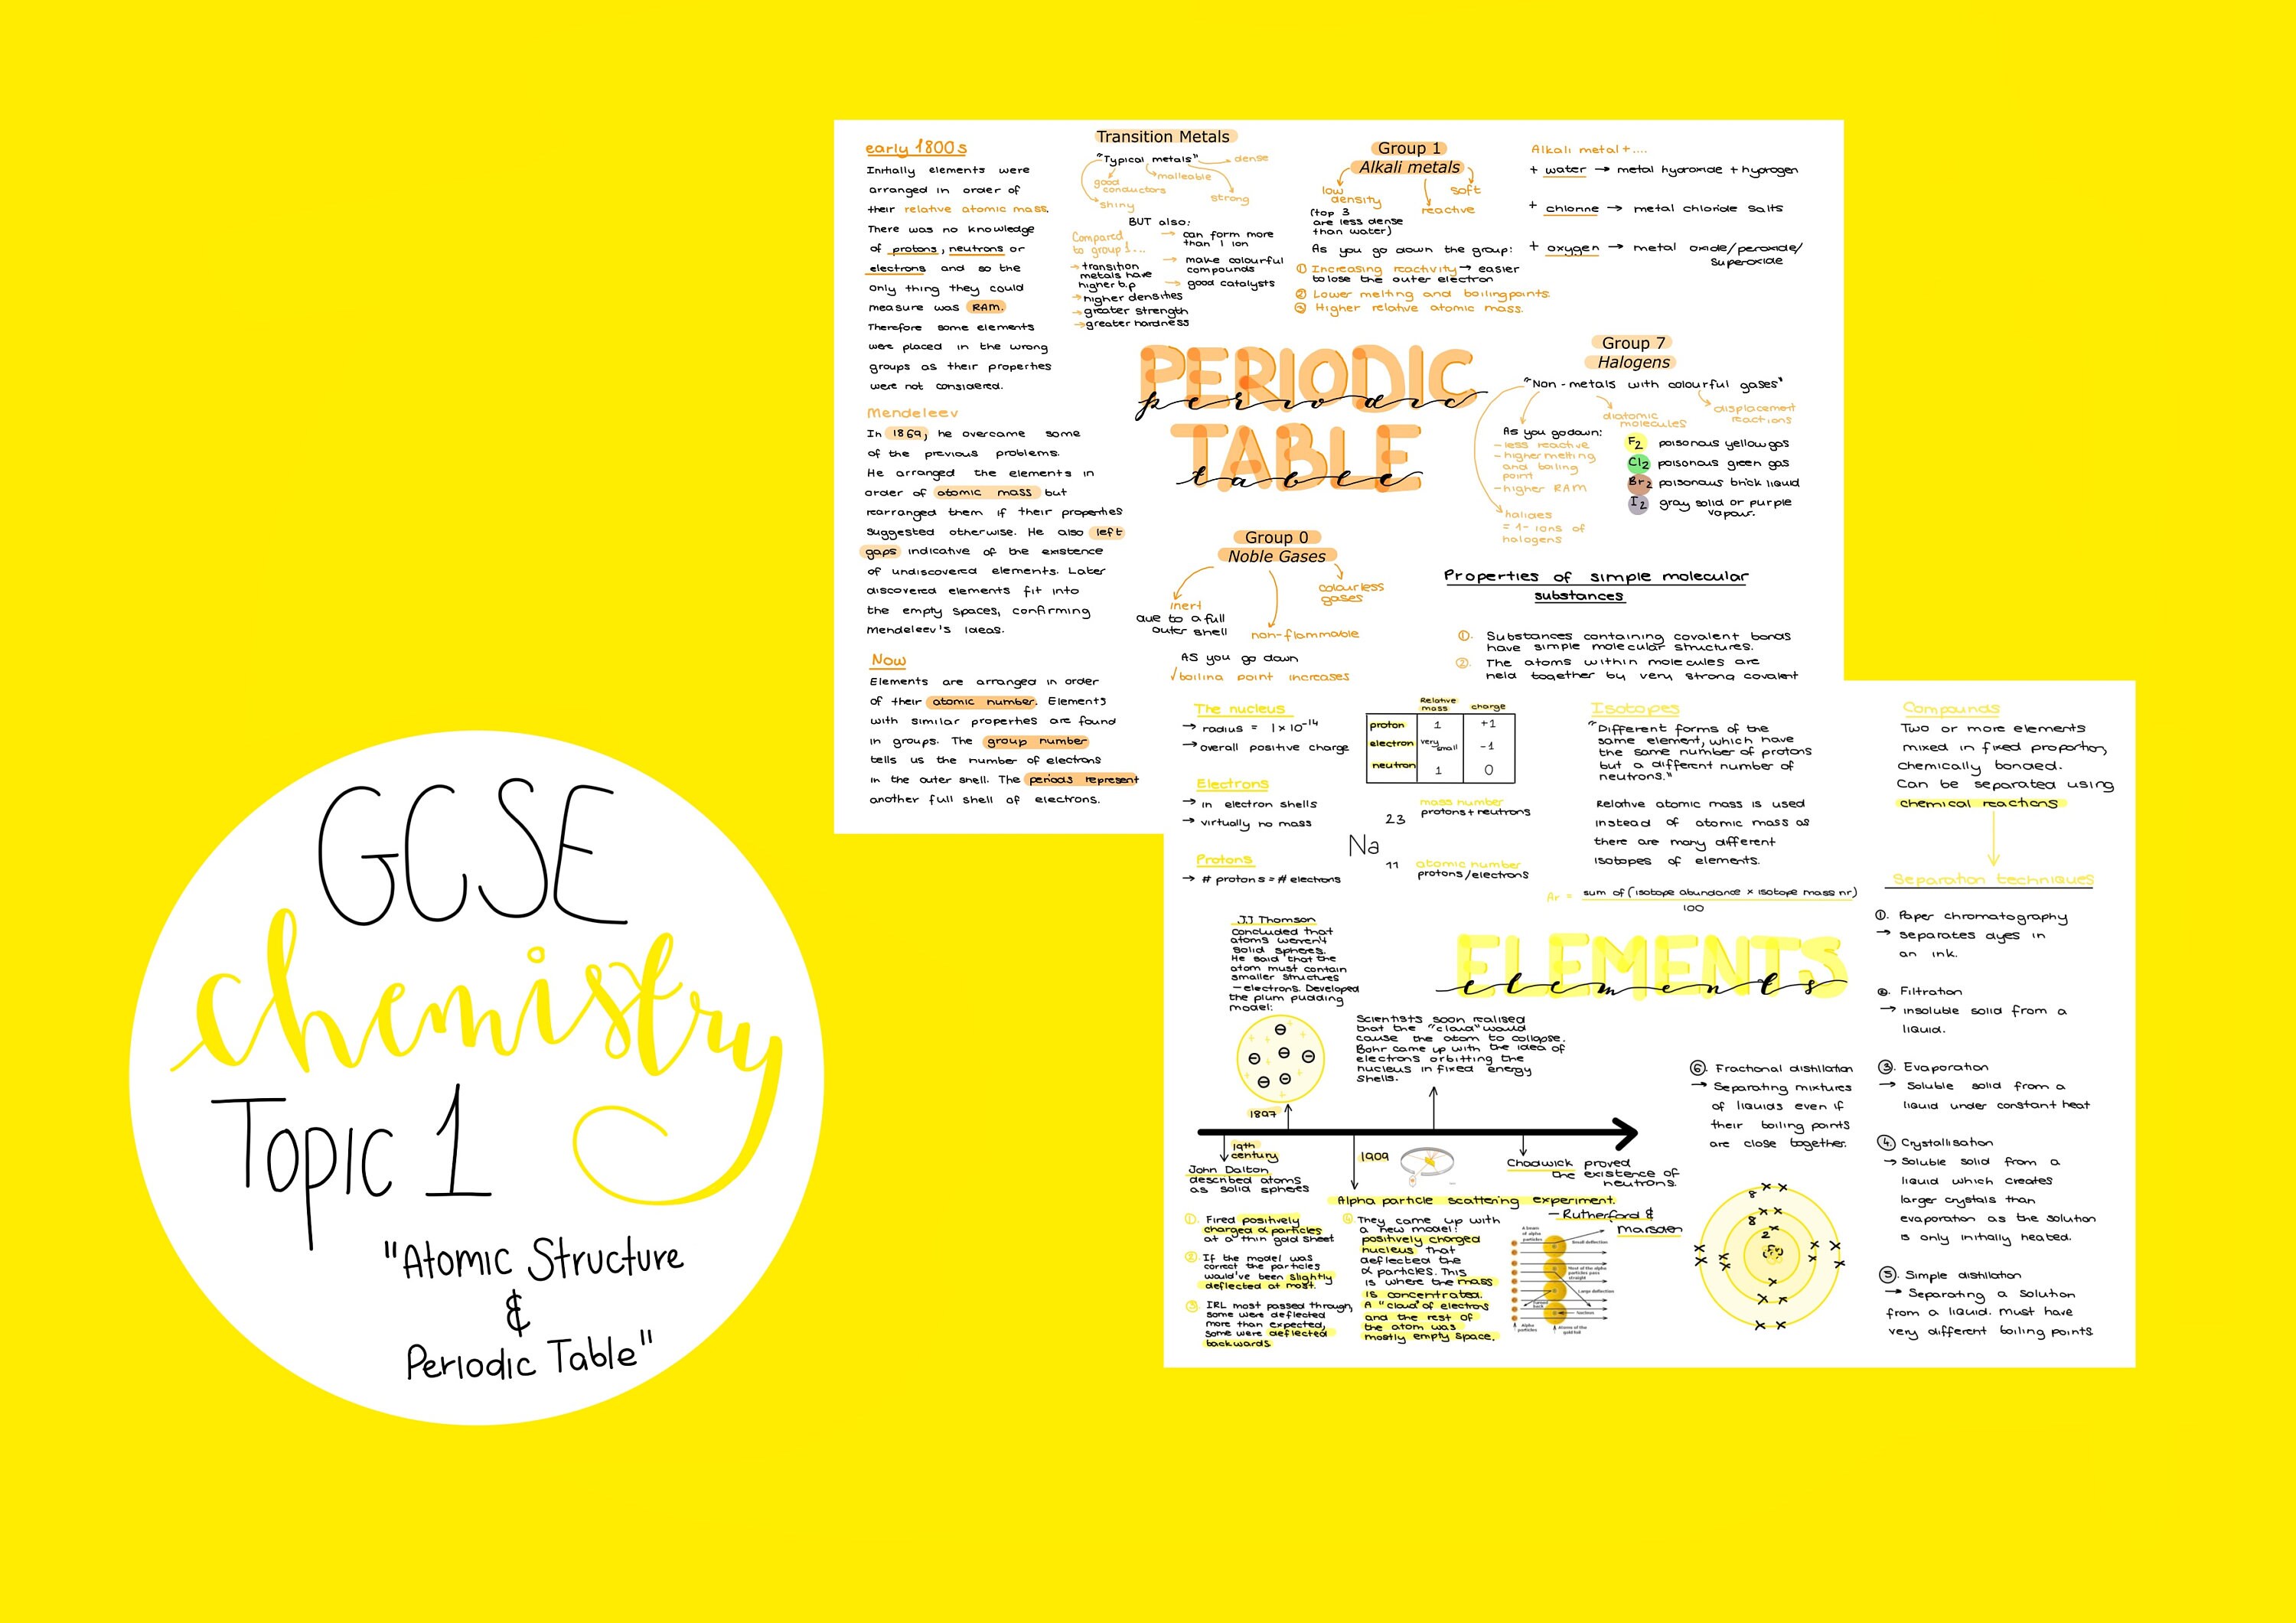 GCSE
chemistry
Topic 1
"Atomic Structure
&
Periodic Table"
early 1800s
Initially elements were
arranged in order of
their relative atomic mass.
There was no knowledge
of protons, neutrons or
electrons and so the
only thing they could
measure was RAM.
Therefore some elements
were placed in the wrong
groups as their properties
were not considered.
Mendeleev
In 1869, he overcame some
of the previous problems.
He arranged the elements in
order of atomic mass but
rearranged them if their properties
suggested otherwise. He also left
gaps indicative of the existence
of undiscovered elements. Later
discovered elements fit into
the empty spaces, confirming
Mendeleev's ideas.
Now
Elements are arranged in order
of their atomic number. Elements
with similar properties are found
in groups. The group number
tells us the number of electrons
in the outer shell. The periods represent
another full shell of electrons.
Transition Metals
"Typical metals"
dense
good
conductors
malleable
shiny
strong
BUT also:
Compared
to group 1...
→ transition
metals have
higher b.p
→ higher densities
→ greater strength
→ greater hardness
→ can form more
than 1 ion
→ make colourful
compounds
→ good catalysts
Group 1
Alkali metals
low
density
(top 3
are less dense
than water)
reactive
soft
As you go down the group:
① Increasing reactivity → easier
to lose the outer electron
② Lower melting and boiling points.
③ Higher relative atomic mass.
Alkali metal +....
+ water → metal hydroxide + hydrogen
+ chlorine → metal chloride salts
+ oxygen → metal oxide/peroxide/
superoxide
PERIODIC
periodic
TABLE
table
Group 7
Halogens
"Non-metals with colourful gases"
diatomic
molecules
displacement
reactions
As you go down:
- less reactive
- higher melting
and boiling
point
- higher RAM
halides
= 1- ions of
halogens
F2 poisonous yellow gas
Cl2 poisonous green gas
Br2 poisonous brick liquid
I2 gray solid or purple
vapour.
Group 0
Noble Gases
inert
due to a full
outer shell
non-flammable
colourless
gases
As you go down
√boiling point increases
Properties of simple molecular
substances
①. Substances containing covalent bonds
have simple molecular structures.
②. The atoms within molecules are
held together by very strong covalent
The nucleus
→ radius = 1×10⁻¹⁴
→ overall positive charge
Electrons
→ in electron shells
→ virtually no mass
Protons
→ # protons = # electrons
Relative
mass
charge
proton 1 +1
electron very small -1
neutron 1 0
23
mass number
protons + neutrons
Na
11
atomic number
protons/electrons
Isotopes
"Different forms of the
same element, which have
the same number of protons
but a different number of
neutrons."
Relative atomic mass is used
instead of atomic mass as
there are many different
isotopes of elements.
Ar = sum of (isotope abundance × isotope mass nr)
100
Compounds
Two or more elements
mixed in fixed proportion,
chemically bonded.
Can be separated using
chemical reactions
Separation techniques
①. Paper chromatography
→ separates dyes in
an ink.
②. Filtration
→ insoluble solid from a
liquid.
③. Evaporation
→ Soluble solid from a
liquid under constant heat
④. Crystallisation
→ Soluble solid from a
liquid which creates
larger crystals than
evaporation as the solution
is only initially heated.
⑤. Simple distillation
→ Separating a solution
from a liquid. must have
very different boiling points
⑥. Fractional distillation
→ Separating mixtures
of liquids even if
their boiling points
are close together.
ELEMENTS
elements
JJ Thomson
concluded that
atoms weren't
solid spheres.
He said that the
atom must contain
smaller structures
- electrons. Developed
the plum pudding
model:
1897
Scientists soon realised
that the "cloud" would
cause the atom to collapse.
Bohr came up with the idea of
electrons orbitting the
nucleus in fixed energy
shells.
19th
century
John Dalton
described atoms
as solid spheres
1909
Chadwick proved
the existence of
neutrons.
Alpha particle scattering experiment.
- Rutherford &
Marsden
①. Fired positively
charged α particles
at a thin gold sheet
②. If the model was
correct the particles
would've been slightly
deflected at most.
③. IRL most passed through,
some were deflected
more than expected,
some were deflected
backwards
④. They came up with
a new model:
positively charged
nucleus that
deflected the
α particles. This
is where the mass
is concentrated.
A "cloud" of electrons
and the rest of
the atom was
mostly empty space.
A beam
of alpha
particles
Small deflection
Most of the alpha
particles pass
straight
Large deflection
Nucleus
Alpha
particles
Atoms of the
gold foil
8
8
2